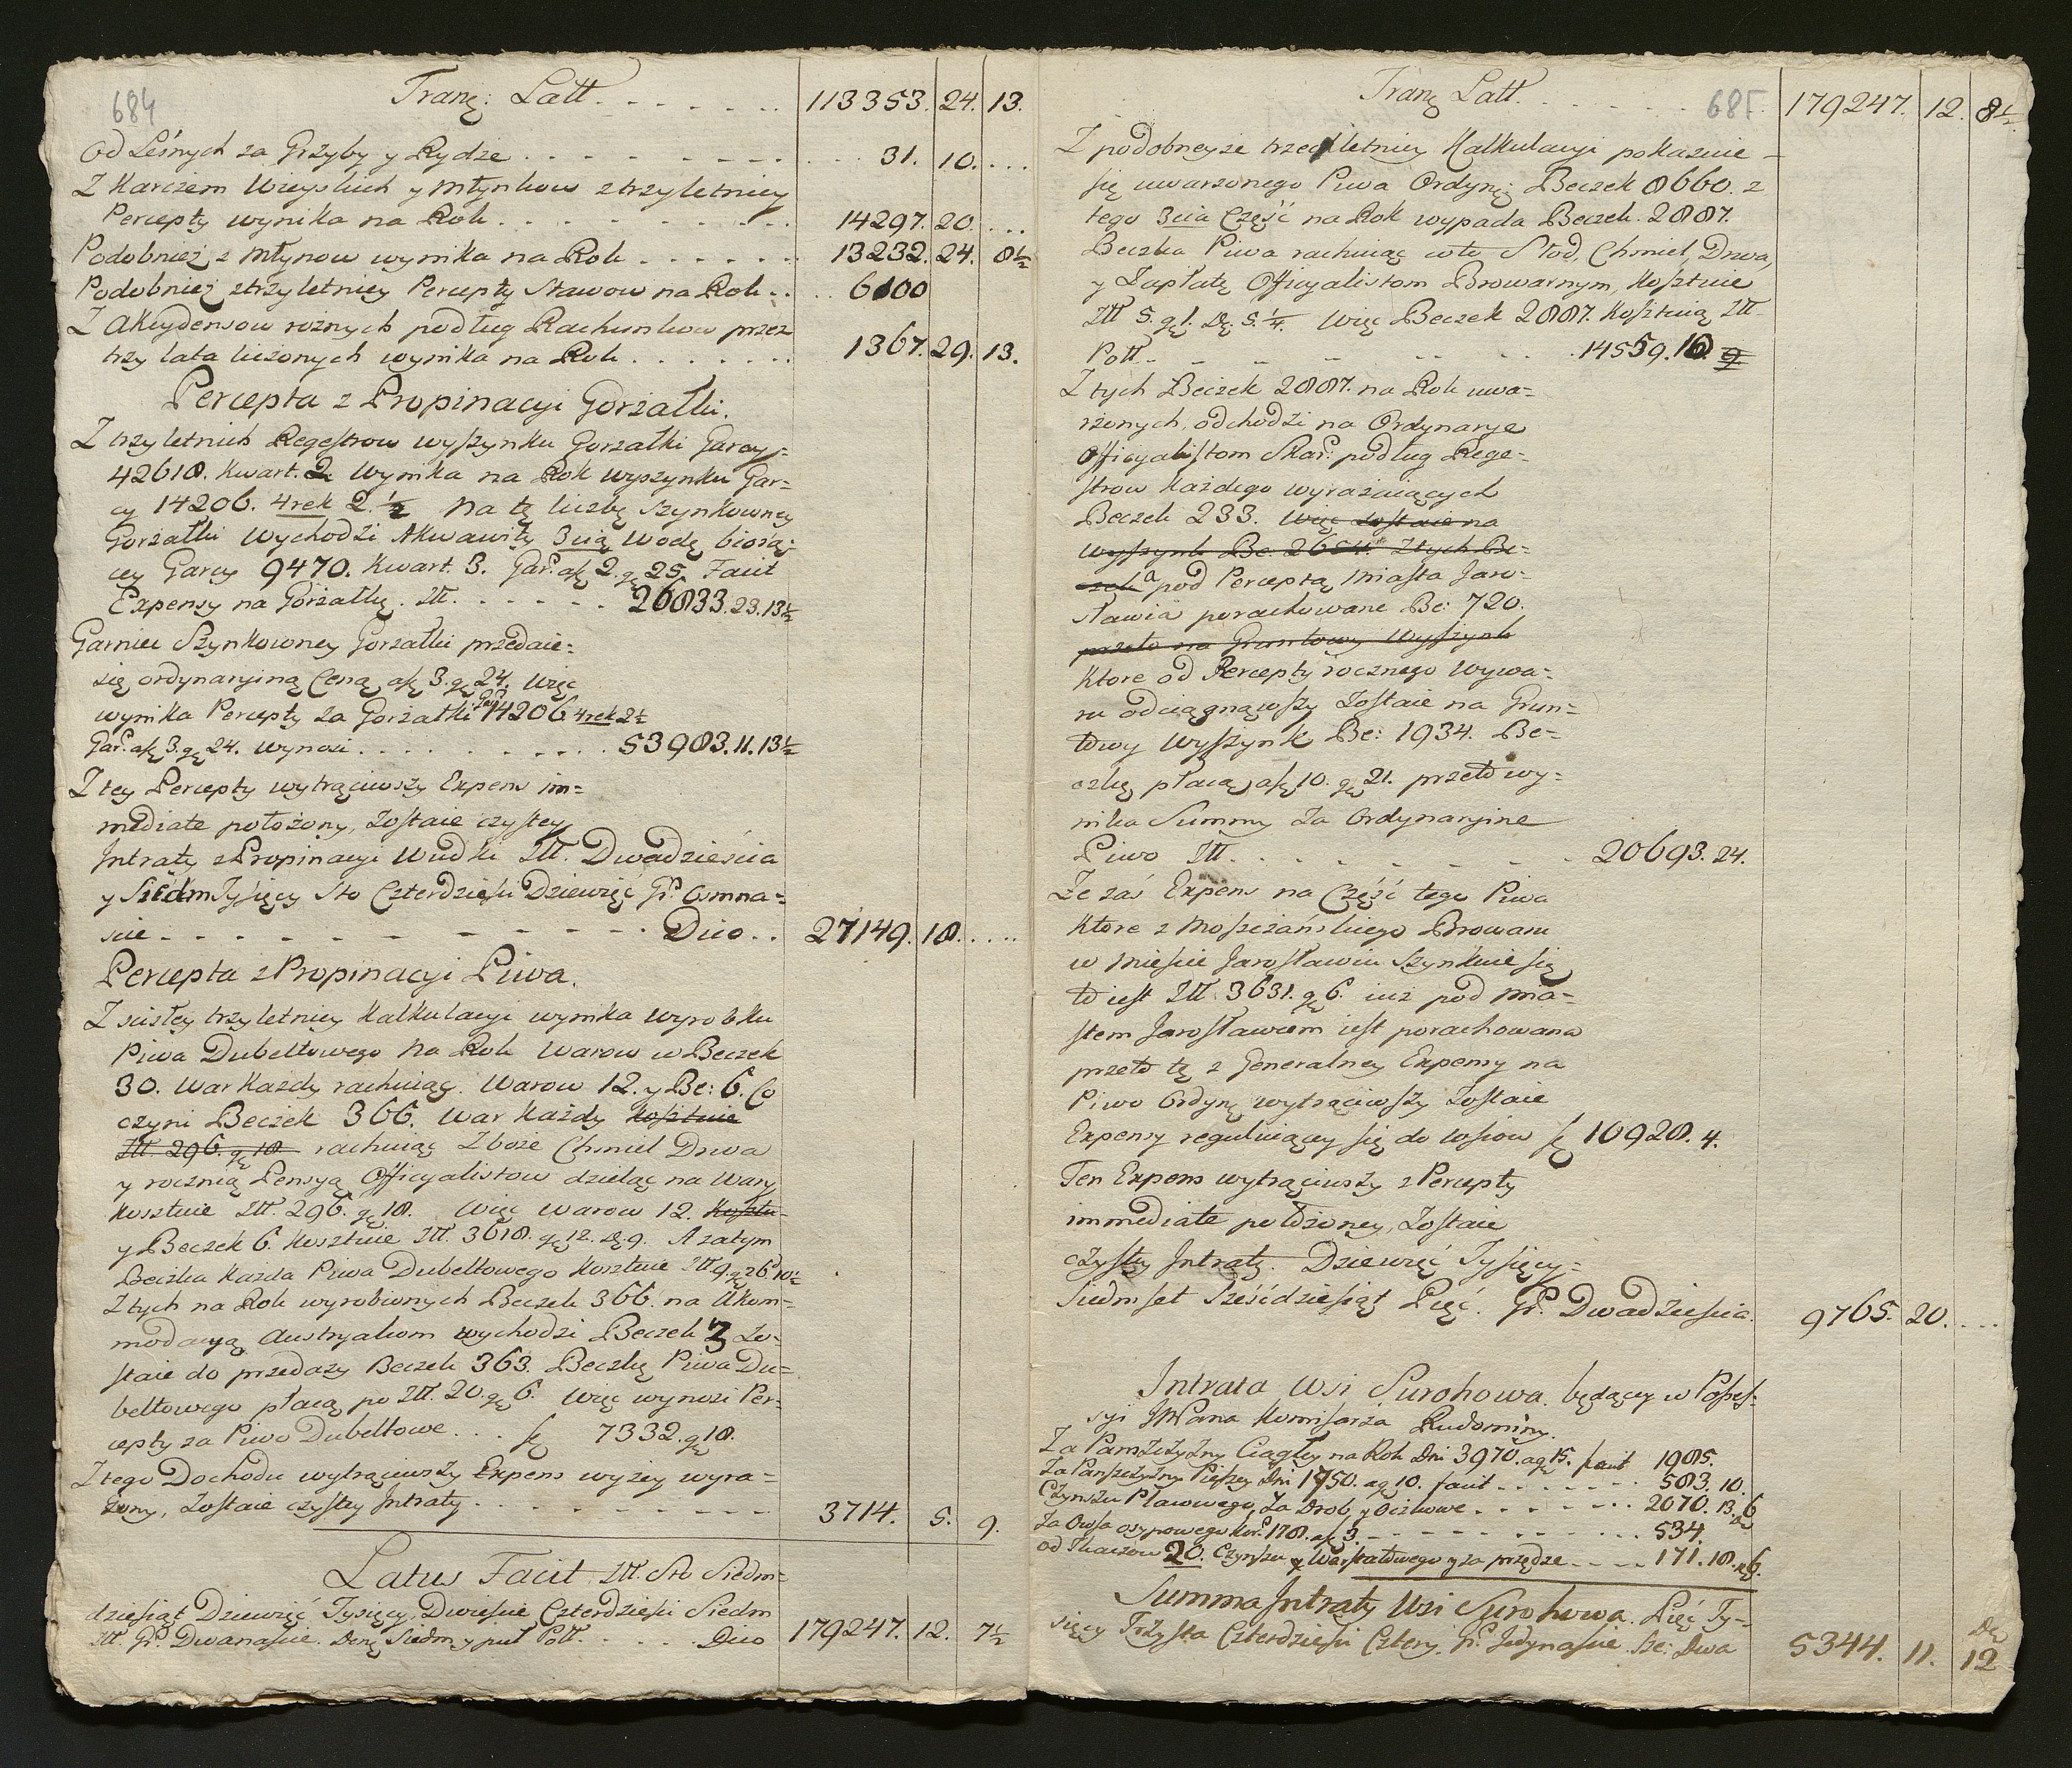 684
Tranz: Latt. 113353. 24. 13.
Od Leśnych za Grzyby y Rydze 31. 10.
Z Karczem Wieyskich y Młynkow z trzyletniey
Percepty wynika na Rok 14297. 20.
Podobnież z Młynow wynika na Rok 13232. 24. 8½
Podobnież z trzyletniey Percepty Stawow na Rok 6100
Z Akcydensow rożnych podług Rachunkow przez
trzy lata liczonych wynika na Rok 1367. 29. 13.
Percepta z Propinacyi Gorzałki.
Z trzyletnich Regestrow wyszynku Gorzałki Garcy=
42618. Kwart. 2 Wynika na Rok wyszynku Gar=
cy 14206. 4rek 2.½ Na tę liczbę Szynkowney
Gorzałki Wychodzi Akwawity 3cią Wodę biorą=
cey Garcy 9470. Kwart. 3. Gar: a f 2. gę 25. Facit
Expensy na Gorzałkę. Złł. 26833. 23. 13½
Garniec Szynkowney Gorzałki przedaie=
się ordynaryiną Ceną a f 3. gę 24. Więc
wynika Percepty za Gorzałki Gar: 14206 4rek 2½
Gar: a f 3. gę 24. wynosi 53983. 11. 13½
Z tey Percepty wytrąciwszy Expens im=
mediate położony, Zostaie czystey
Intraty z Propinacyi Wudki Złł. Dwadzieścia
y Siedm Tysięcy Sto Czterdzieści Dziewięć Gr: Osmna=
ście Dico 27149. 18.
Percepta z Propinacyi Piwa.
Z scisłey trzyletniey Kalkulacyi wynika wyrobku
Piwa Dubeltowego Na Rok Warow w Beczek
30. War Każdy rachuiąc. Warow 12. y Be: 6. Co
czyni Beczek 366. War Każdy Kosztuie
Złł. 296. gę 18. rachuiąc Zboże Chmiel Drwa
y roczną Pensyą Officyalistow dzieląc na Wary
Kosztuie Złł. 296. gę 18. Więc Warow 12. Kosztu=
y Beczek 6. Kosztuie Złł. 3618. gę 12. dę 9. A zatym
Beczka Każda Piwa Dubeltowego Kosztuie Złł. 9. gę 26 d 10½
Z tych na Rok wyrobionych Beczek 366. na Akom=
modacyą Austryakom wychodzi Beczek 3 Zo=
staie do przedaży Beczek 363. Beczkę Piwa Du=
beltowego płacą po Złł. 20. gę 6. Więc wynosi Per=
cepty za Piwo Dubeltowe f 7332. gę 18.
Z tego Dochodu wytrąciwszy Expens wyżey wyra=
żony, Zostaie czystey Intraty 3714. 5. 9.
Latus Facit Złł. Sto Siedm=
dziesiąt Dziewięć Tysięcy, Dwieście Czterdzieści Siedm
Złł. Gr: Dwanaście. Denę Siedm y puł Poll. Dico 179247. 12. 7½
685
Tranz Latt. 179247. 12. 8½
Z podobneyże trzechletniey Kalkulacyi pokazuie
się uwarzonego Piwa Ordyn: Beczek 8660. z
tego 3cia Część na Rok wypada Beczek. 2887.
Beczka Piwa rachuiąc wto Słod, Chmiel, Drwa,
y Zapłatę Officyalistom Browarnym, Kosztuie
Złł 5. gę 1. dę 5.¼. Więc Beczek 2887. Kosztuią Złł
Poll 14559. 16. 9.
Z tych Beczek 2887. na Rok uwa=
rzonych, odchodzi na Ordynarye
Officyalistom Skar: podług Rege=
strow każdego wyrażaiących
Beczek 233. Więc zostaie na
wyszynk Be: 2654. Z tych Be=
czek a pod Perceptą Miasta Jaro=
sławia porachowane Be: 720.
przeto na Gruntowy Wyszynk
Ktore od Percepty rocznego Wywa=
ru odciągnąwszy Zostaie na Grun=
towy Wyszynk Be: 1934. Be=
czkę płacą a f 10. gę 21. przeto wy=
nika Summy Za Ordynaryine
Piwo Złł. 20693. 24.
Że zaś Expens na Część tego Piwa
Ktore z Moszczańskiego Browaru
w mieście Jarosławiu Szynkuie się
to iest Złł. 3631. gę 6. iuż pod Mia=
stem Jarosławiem iest porachowana
przeto tę z Generalney Expensy na
Piwo Ordyn: wytrąciwszy Zostaie
Expensy reguluiącey się do Wsiow f 10928. 4.
Ten Expens wytrąciwszy z Percepty
immediate położoney, Zostaie
czystey Intraty. Dziewięć Tysięcy=
Siedmset Sześćdziesiąt Pięć. Gr: Dwadzieścia. 9765. 20.
Intrata Wsi Surohowa będącey w Posses=
syi JWPana Komisarza Rudominy.
Za Pańszczyzny Ciągłey na Rok Dni 3970. a gę 15. facit 1985.
Za Pańszczyzny Pieszey Dni 1750. a gę 10. facit 583. 10.
Czynszu Pławowego, Za Drob, y Oczkowe 2070. 13. 6
Za Owsa osypowego Kor: 178. a f 3. 534.
od Tkaczow 20. Czynszu y Warsztatowego y za przędze 171. 18. 6.
Summa Intraty Wsi Surohowa. Pięć Ty=
sięcy Trzysta Czterdzieści Cztery. Gr: Jedynaście Sze: Dwa 5344. 11. dę 12